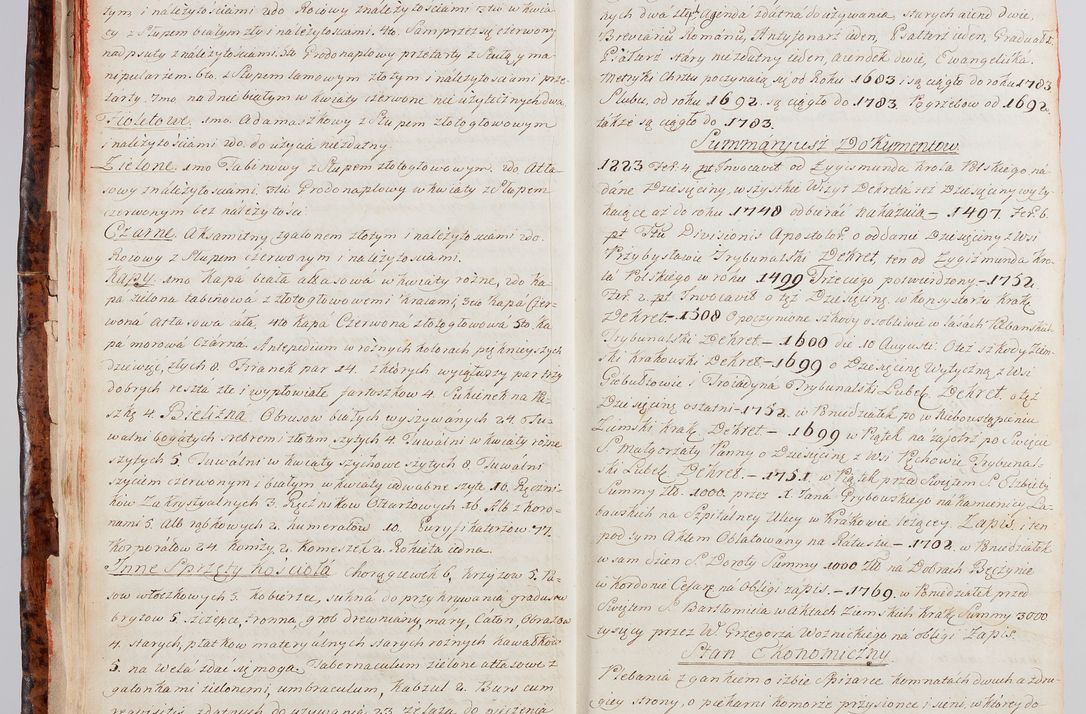 tym i należytościami 2do Rożowy z należytościami 3tio w kwia-
cy z Słupem białym zły i należytosciami. 4to. Sam przez się czerwony
nadpsuty z należytościami. 5to Grodonaplowy przetarty z Stułą y ma-
nipularzem. 6to. z Słupem lamowym złotym i należytościami prze-
tarty. 7mo. na dnie białym w kwiaty czerwone nie użytecznych dwa
Fioletowe. 1mo. Adamaszkowy z Słupem złotogłowowym
i należytościami 2do. do użycia niezdatny.
Zielone. 1mo Tabinowy z Słupem złotogłowowym. 2do Atła-
sowy z należytościami. 3tio Grodonaplowy w kwiaty z Słupem
czerwonym bez należytości.
Czarne. Aksamitny z galonem złotym i należytosciami 2do.
Rożowy z Słupem czerwonym i należytościami.
Kapy. 1mo Kapa biała atłasowa w kwiaty rożne, 2do Ka-
pa zielona tabinowa z złotogłowowemi kraiami, 3tio Kapa Czer-
woná Atłasowa cáła, 4to Kapá Czerwoná złotogłowowá 5to. Ka
pa morowá Czarna. Antepedium w rożnych kolorach pięknieyszych
dziewięć, złych 8. Firanek par 14. z ktorych wyiąwszy par trzy
dobrych reszta złe i wypłowiałe fartuszkow 4. Sukienek na Pu-
szkę 4. Bielizna. Obrusow białych wyszywanych 24. Tu-
walni bogatych srebrem i złotem szytych 4. Tuwalni w kwiaty rożne
szytych 5. Tuwálni w kwiaty szychowe szytych 8 Tuwálni
szyciem czerwonym i białym w kwiaty iedwabne szyte .16. Ręczni-
ków Zakrystyalnych 3. Ręcznikow Ołtarzowych .26. Alb z koro-
nami 5. Alb rąbkowych 2. humerałow 10. Puryfikaterzow .77.
Korporałow 24. komży 2. Komeszek 2. Rokieta iedna.
Inne Sprzęty kościoła Chorągiewek 6, krzyżow 5. Pa-
sow włoczkowych 3. kobierzec, sukná do przykrywania gradusow
bryzow 5. szczepce, tronna, grob drewniany, máry, Całon, Obrazow
4. starych, płatkow materyálnych starych rożnych kawałkow
5. na Wela zdać się mogą. Tabernaculum zielone atłasowe z
galonkámi zielonemi, umbraculum, kadzul 2. Burs cum
requisitis zdatnych do używania .23. żelaza do pieczenia
nych dwá złe, Agenda zdátná do używania, starych aiend dwie,
Breviariu Románu, Antyfonarz ieden, Psałterz ieden, Graduał 1.
Psałterz stary niezdatny ieden, aiendek dwie, Ewangelitka.
Metryki Chrztu poczynaią się od Roku .1683 i są ciągło do roku 1783.
Slubu, od roku 1692. są ciągło do 1783. Pogrzebow od 1692.
także są ciągło do 1783.
Summáryusz Dokumentow.
1223 Fer. 4. pt Invocavit od Zygismunda krola Polskiego na-
dane Dziesięciny, wszystkie Wizyt Dekreta też Dziesięciny wyty-
kaiące aż do roku 1748 odbierać nakazuią — 1497. Fer. 6.
pt Ftu Divisionis Apostolor. o oddanie Dziesięciny z Wsi
Przybysławic Trybunalski Dekret, ten od Zygizmunda kro-
lá Polskiego w roku 1499 Trzeciego potwierdzony — 1752.
Fer. 2. pt Invocavit o też Dziesięcinę w konsystorzu krak.
Dekret — 1508 O poczynione szkody osobliwie w lasach Plebanskich
Trybunálski Dekret — 1600 die 10 Augusti. O też szkody Ziem-
ski krakowski Dekret — 1699 o Dziesięcinę Wytyczną z Wsi
Giebułtowie i Troiadyna Trybunalski Lubel. Dekret. o też
Dziesięcinę ostatni — 1752. w Poniedziałek po w Niebowstąpieniu
Ziemski krak. Dekret — 1699 w Piątek na zajutrz po Swięcie
S. Małgorzaty Panny o Dziesięcinę z Wsi Pęchowic Trybunal-
ski Lubel. Dekret. — 1751. w Piątek przed Swiętem S. Elżbiety
Summy Zło. 1000. przez J. Jana Grybowskiego na kamienicy La-
bauskich na Szpitálney Ulicy w Krakowie leżącey Zapis, i ten
pod tym Aktem Oblatowany na Rátuszu — 1702. w Poniedziałek
w sam dzien S. Doroty Summy 1000 Złł na Dobrach Bęczynie
w kordonie Cesar. na Obligi zapis. — 1769. w Poniedziałek przed
Swiętem S. Bartłomieia w Aktach Ziemskich krak. Summy 3000
tysięcy przez W. Grzegorza Woznickiego na obligi Zapis.
Stan Ekonomiczny.
Plebania z gankiem o izbie Spizarce komnatach dwuch a z dru-
giey strony, o piekarni komorze przysionce i sieni, w ktorey do